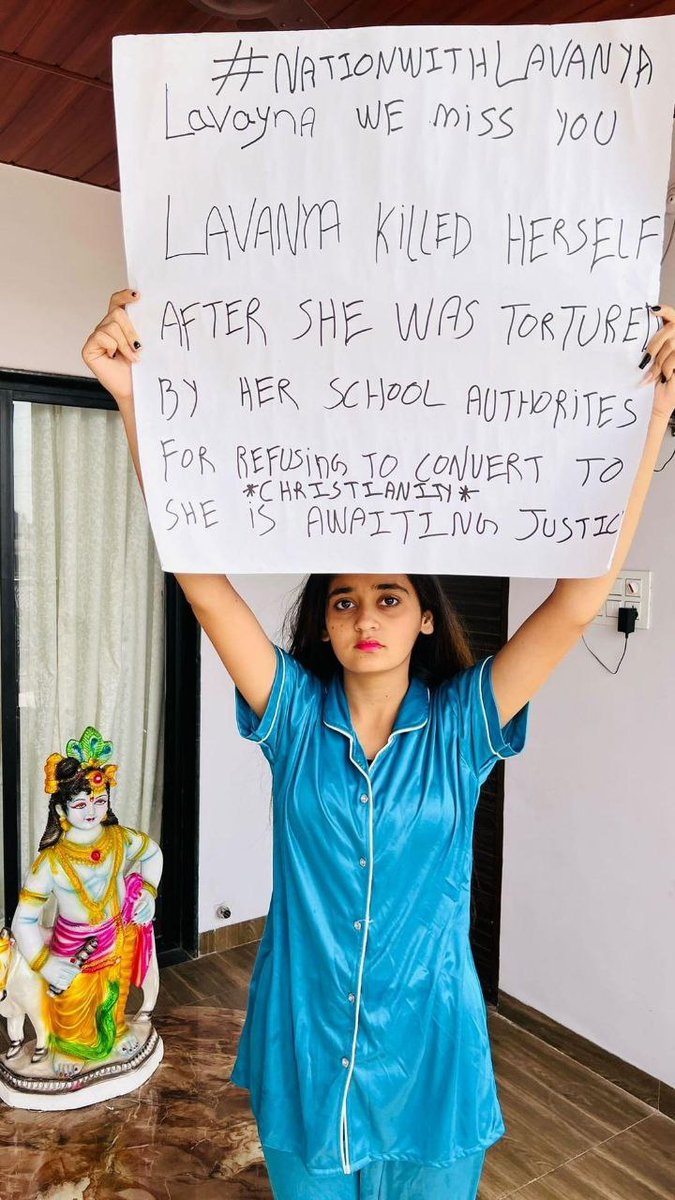 #NATIONWITHLAVANYA
Lavayna WE miss YOU
LAVANYA KILLED HERSELF
AFTER SHE WAS TORTURED
BY HER SCHOOL AUTHORITES
FOR REFUSING TO CONVERT TO
*CHRISTIANITY*
SHE is AWAITING JUSTIC